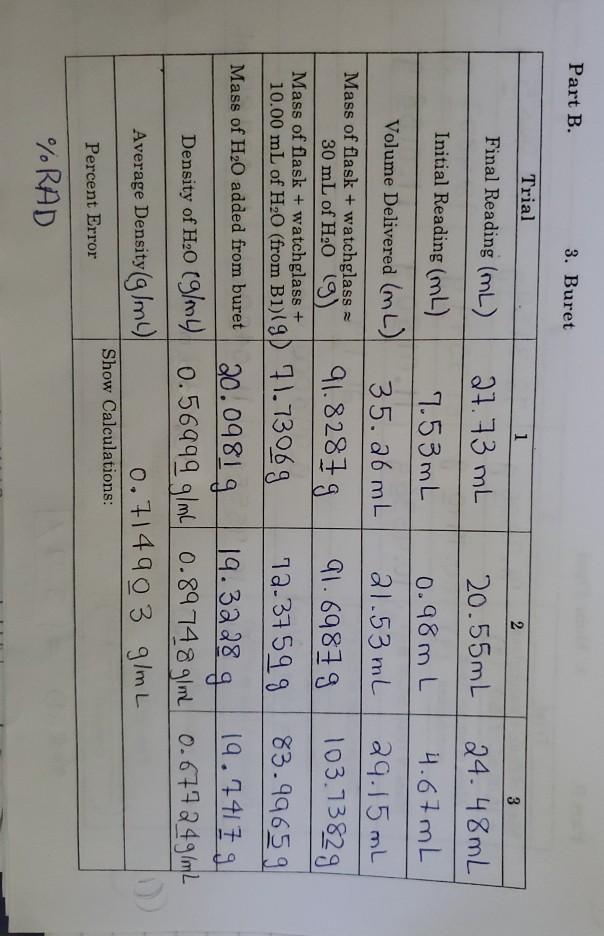 Part B. 3. Buret
Trial 1 2 3
Final Reading (mL) 27.73 mL 20.55mL 24.48mL
Initial Reading (mL) 7.53mL 0.98mL 4.67mL
Volume Delivered (mL) 35.26mL 21.53mL 29.15mL
Mass of flask + watchglass ≈
30 mL of H₂O (g) 91.8287g 91.6987g 103.7382g
Mass of flask + watchglass +
10.00 mL of H₂O (from B1)(g) 71.7306g 72.3759g 83.9965g
Mass of H₂O added from buret 20.0981g 19.3228g 19.7417g
Density of H₂O (g/mL) 0.56999 g/mL 0.89748g/ml 0.67724g/mL
Average Density(g/mL) 0.714903 g/mL
Percent Error Show Calculations:
%RAD